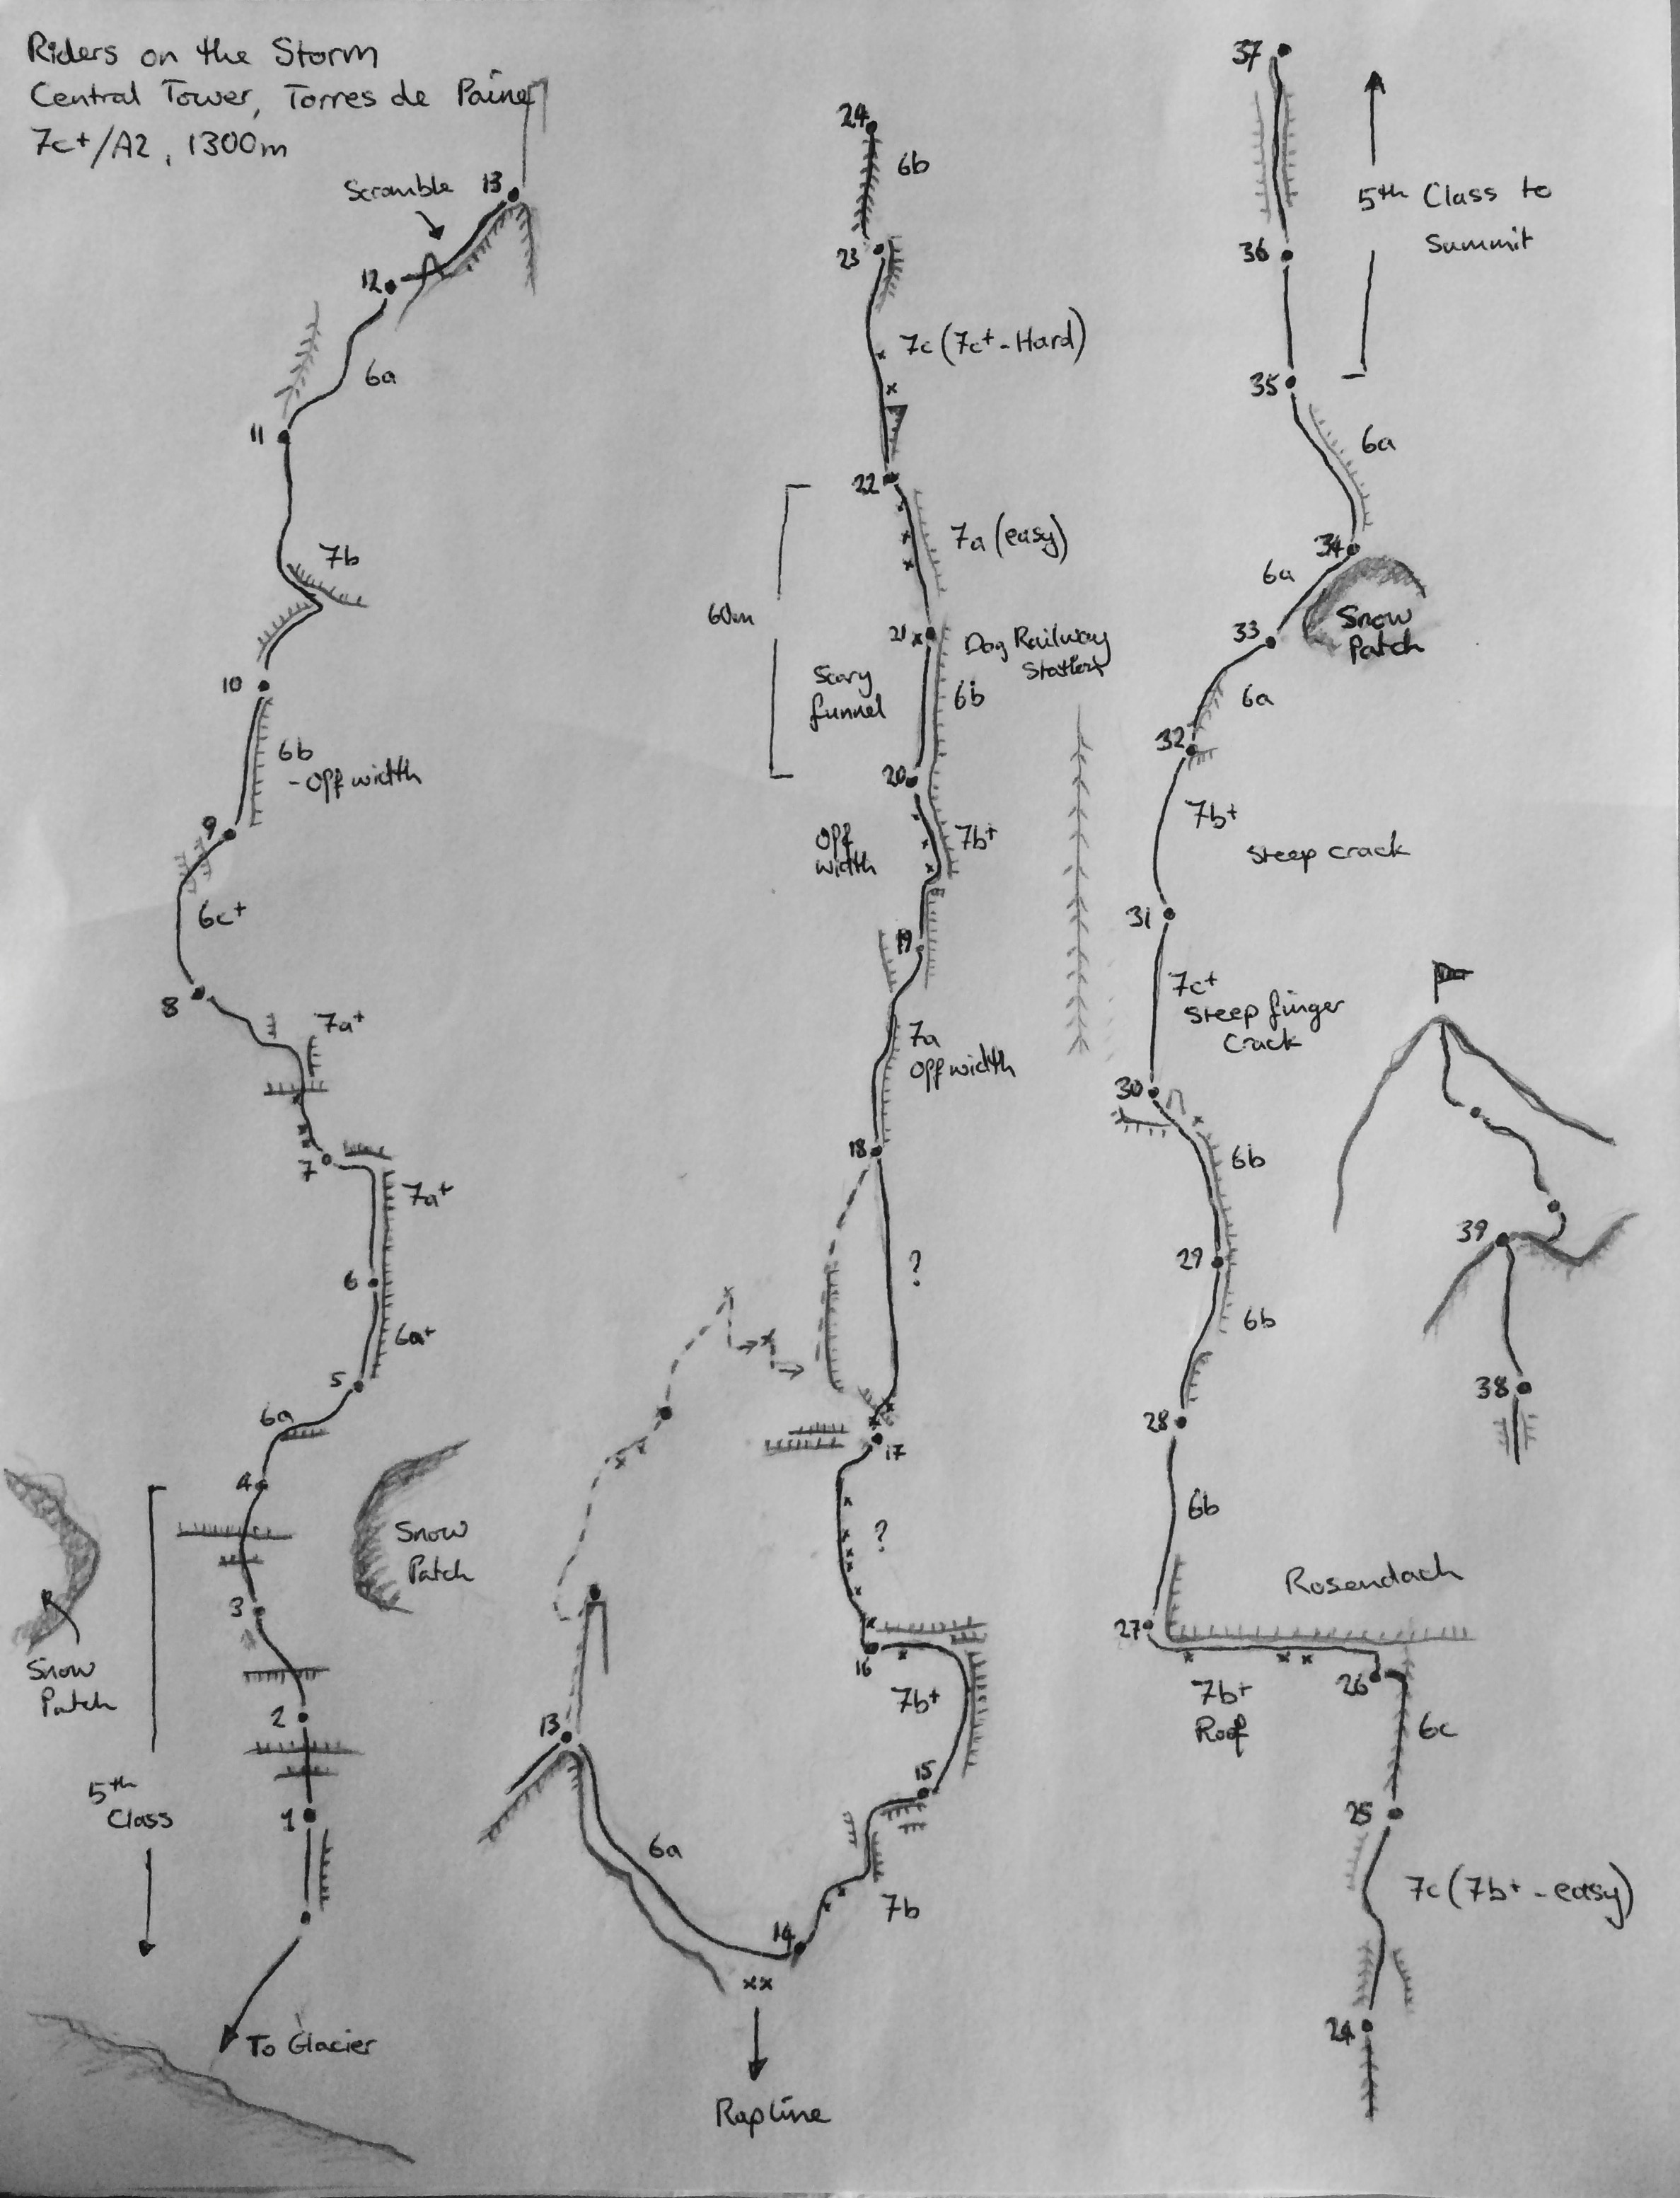 Riders on the Storm
Central Tower, Torres de Paine
7c+/A2, 1300m
Scramble
13
12
6a
11
7b
10
6b
-Off width
9
6c+
8
7a+
7
7a+
6
6a+
5
6a
4
Snow
Patch
3
Snow
Patch
2
5th
Class
1
To Glacier
24
6b
23
7c (7c+ - Hard)
22
7a (easy)
60m
21
Dog Railway
Station
Scary
funnel
6b
20
Off
width
7b+
19
7a
Off width
18
?
17
?
16
7b+
15
13
6a
7b
14
xx
Rapline
37
5th Class to
Summit
36
35
6a
34
6a
Snow
Patch
33
6a
32
7b+
Steep crack
31
7c+
Steep finger
Crack
30
6b
29
6b
28
6b
Rosendach
27
26
7b+
Roof
6c
25
7c (7b+ - easy)
24
39
38